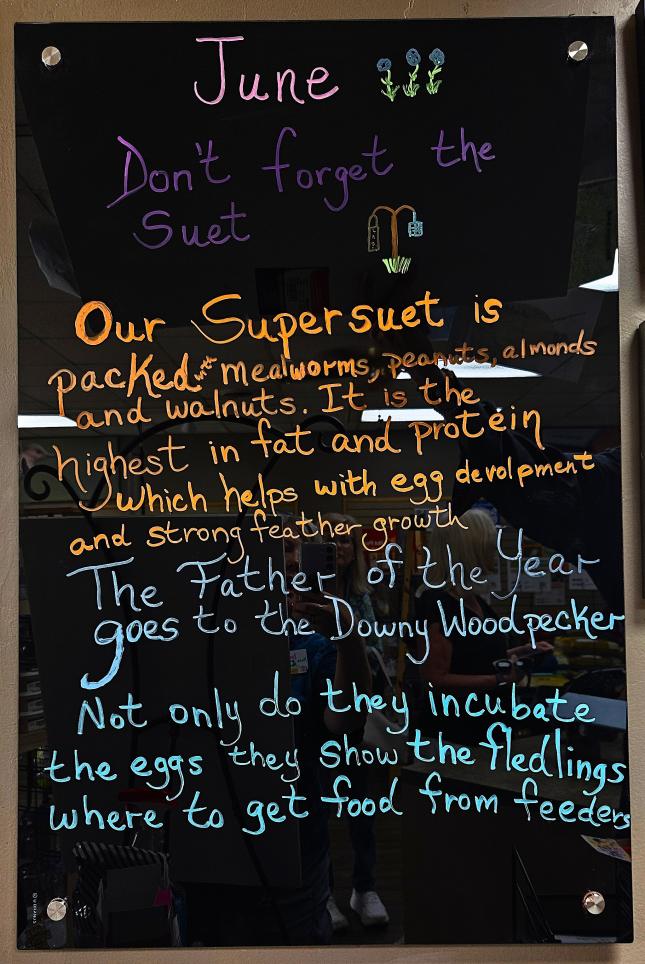 June
Don't forget the
Suet
Our Supersuet is
packed with mealworms, peanuts, almonds
and walnuts. It is the
highest in fat and protein
which helps with egg devolpment
and strong feather growth
The Father of the Year
goes to the Downy Woodpecker
Not only do they incubate
the eggs they show the fledlings
where to get food from feeders